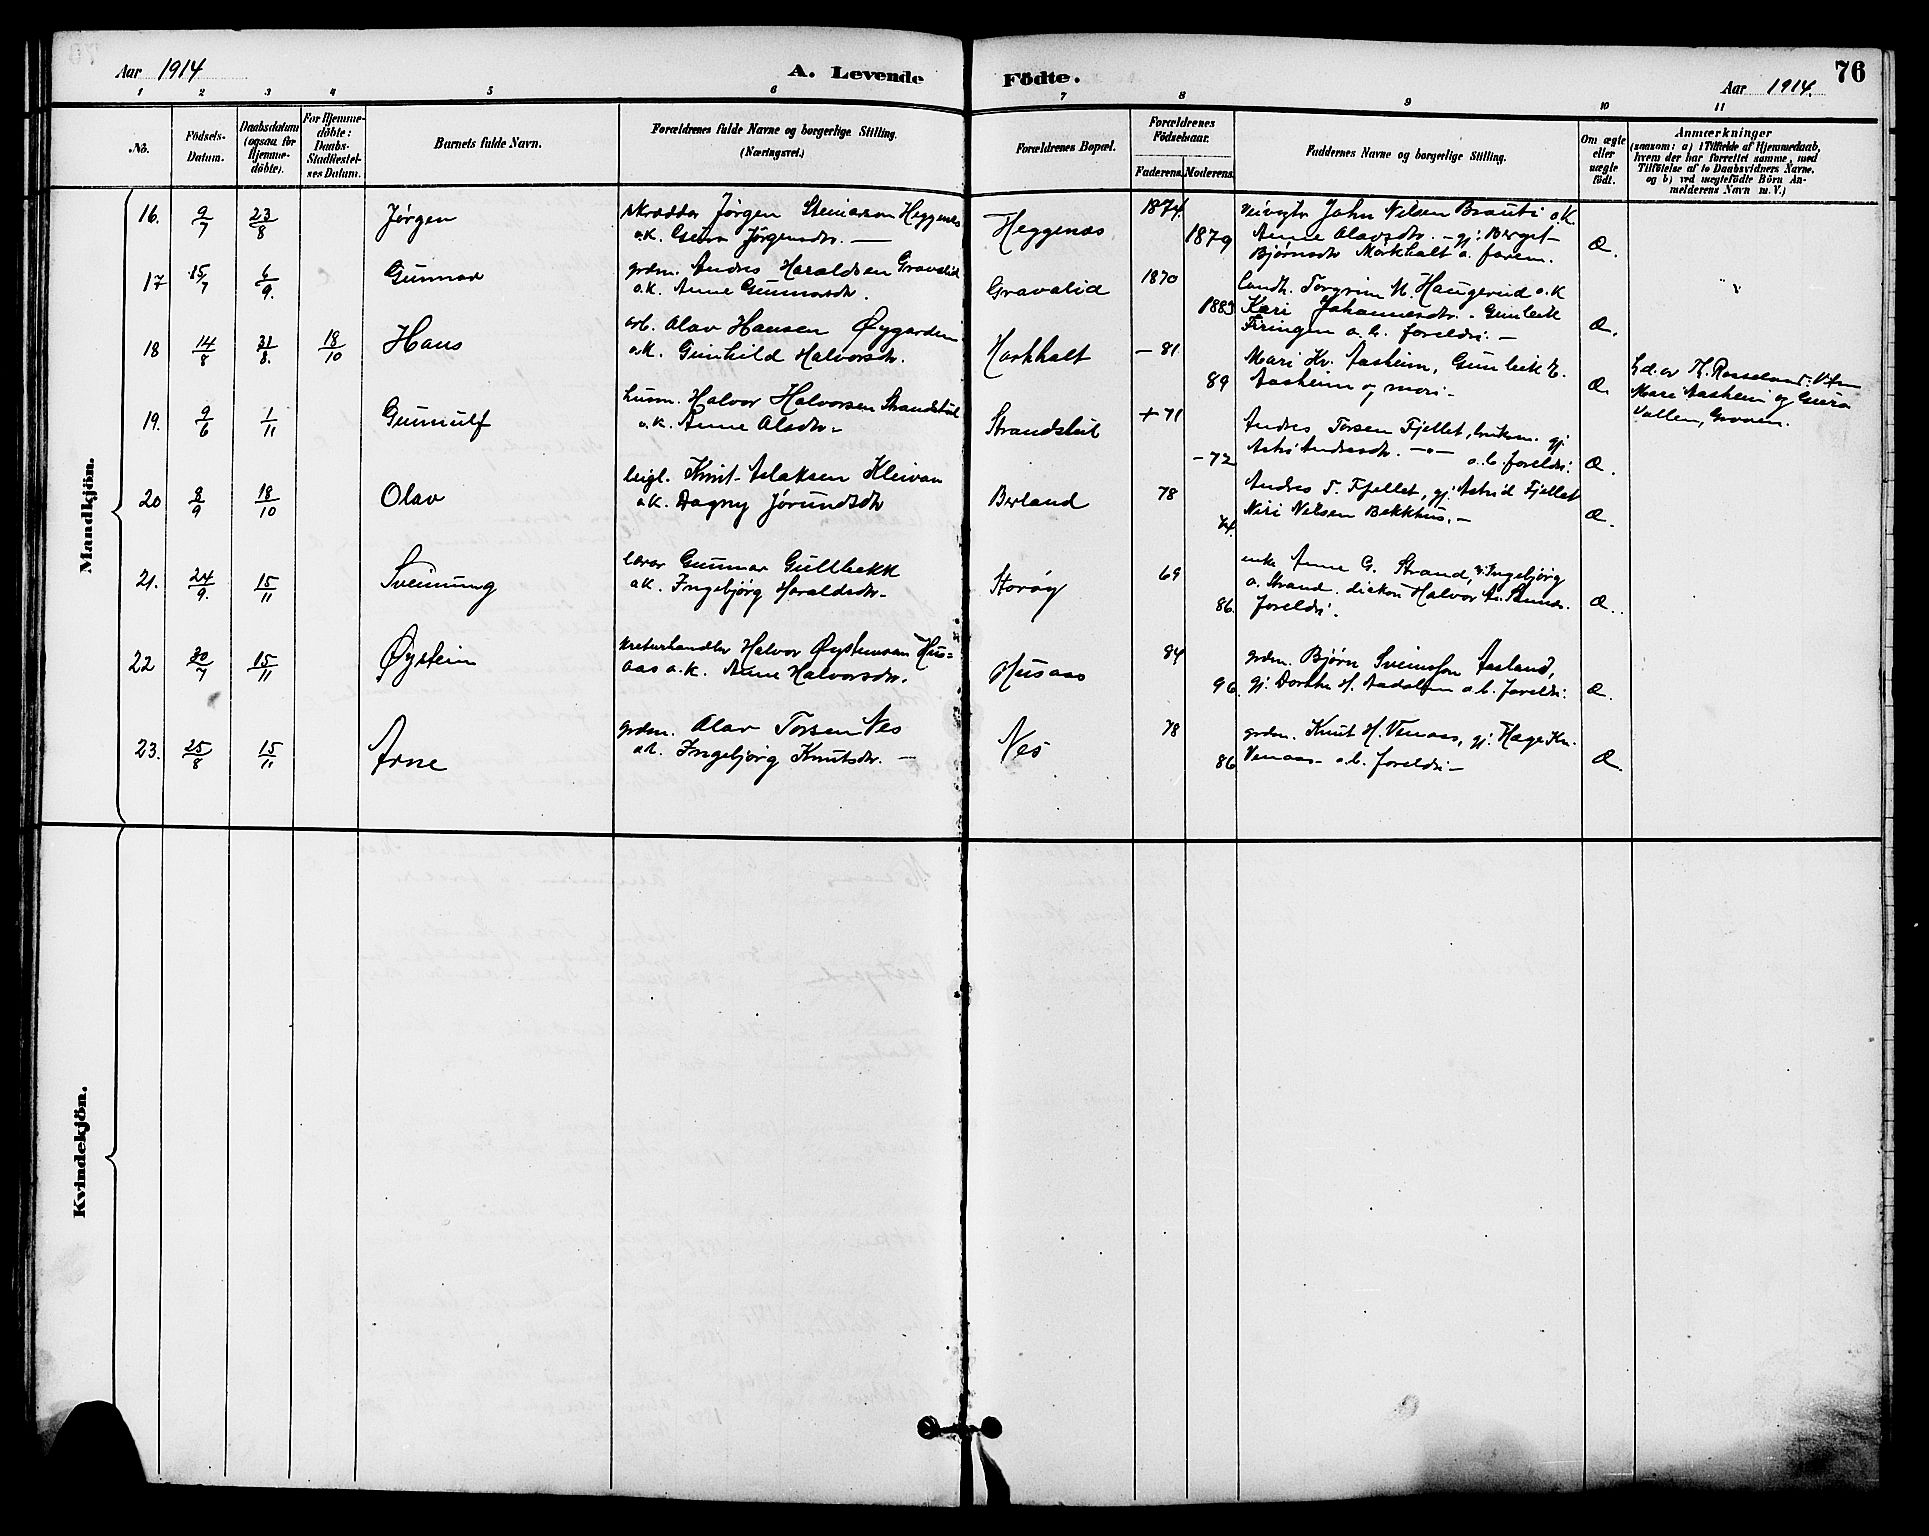 Aar 1914
A. Levende
Födte.
Aar 1914.
76
1 2 3 4 5 6 7 8 9 10 11
No.
Födsels-Datum.
Daabsdatum (ogsaa for Hjemme-döbte).
For Hjemme-döbte: Daabs-Stadfæstel-ses Datum.
Barnets fulde Navn.
Forældrenes fulde Navne og borgerlige Stilling. (Næringsvei.)
Forældrenes Bopæl.
Forældrenes Födselsaar.
Faderens. Moderens.
Faddernes Navne og borgerlige Stilling.
Om ægte eller uægte födt.
Anmærkninger
(saasom: a) i Tilfælde af Hjemmedaab, hvem der har forrettet samme, med Tilföielse af to Daabsvidners Navne. og b) ved uægtefödte Börn An-melderens Navn m. V.)
Mandkjön.
16. 9/7 23/8 Jørgen
skrædder Jørgen Steinarson Heggenæs
o.k. Jørgensdtr. —
Heggenæs 1874. 1879
John Nilsen Brauti o.k.
Anne Olavsdtr. - gj: Berget
Bjørnsdtr Mörkhalt o. forem.
Æ.
17 15/7 6/9. Gunnar
grdm. Andres Haraldsen Gravalid
o.k. Anne Gunnarsdtr.
Gravalid 1870 1883
Landh. Torgrim N. Haugerud o.k
Kari Johannesdtr. Gunleik
Firingen o. b. foreldri. —
Æ.
18 14/8 31/8. 18/10 Hans
arb. Olav Hansen Øygarden
o.k. Gunhild Halvorsdtr.
Morkhalt - 81 89
Mari Kv. Aasheim, Gunleik E.
Aasheim og mori.
Æ.
Mari Aasheim og
19. 9/6 1/11 Gunnulf
husm. Halvor Halvorsen Strandstul
o.k. Anne Olsdtr.
Strandstul + 71 - 72
Andres Torsen Fjellet, gj.
Andresdtr. — o.b. foreldri.
Æ.
20 8/9 18/10 Olav
leigl. Knut Aslaksen Kleivan
o.k. Dagny Jørundsdtr
Berland 78
Andres T. Fjellet, gj. Astrid Fjellet
Neri Nilsen Bekkhus. —
Æ.
21. 24/9. 15/11 Sveinung
lærar Gunnar Gullbekk
o.k. Ingebjörg Haraldsdtr.
Storøy 69 86.
enke Anne G. Strand, Ingebjörg
o. Strand. Halvor
foreldri.
Æ.
22 30/7 15/11 Øystein
kreturhandler Halvor Øysteinsson Hus=
aas o.k. Anne Halvorsdtr.
Husaas 84 96
grdm. Bjørn Sveinsson Aasland,
gj. Dorthe H. Aadalen o.b. foreldri.
Æ.
23. 25/8 15/11 Arne
grdm. Olav Torsen Nes
o.k. Ingebjörg Knutsdtr. —
Nes 78 86
grdm. Knut H. Venaas, gj. Hæge Kn.
Venaas o.b. foreldri —
Æ.
Kvindekjön.